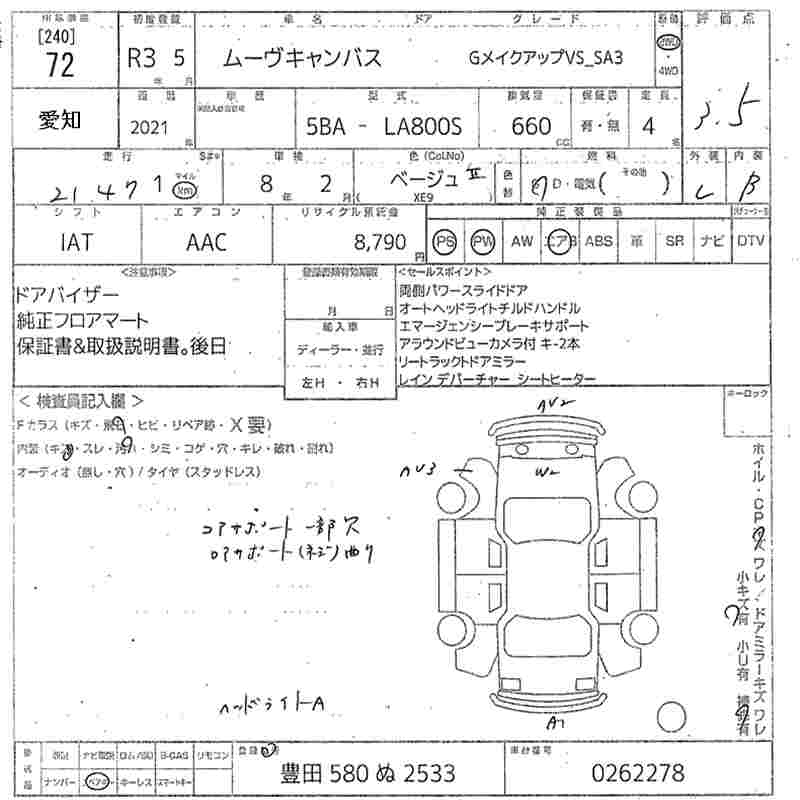 [240]
72
初度登録
R3 5
年 月
車名 ドア グレード
ムーヴキャンバス GメイクアップVS_SA3
2WD
4WD
評価点
3.5
愛知
2021
年
車歴
型式
5BA - LA800S
排気量
660
CC
保証書
有・無
定員
4
名
走行
21,471
マイル
km
車検
8年 2月
色(Col.No)
ベージュII
( XE9 )
色替
燃料
G D・電気 (その他)
外装
C
内装
B
シフト
IAT
エアコン
AAC
リサイクル預託金
8,790
円
純正装備品
PS PW AW エアB ABS 革 SR ナビ DTV
<注意事項>
ドアバイザー
純正フロアマート
保証書&取扱説明書。後日
登録書類有効期限
月 日
輸入車
ディーラー・並行
左H・右H
<セールスポイント>
両側パワースライドドア
オートヘッドライトチルドハンドル
エマージェンシーブレーキサポート
アラウンドビューカメラ付 キ-2本
リートラックトドアミラー
レイン デパーチャー シートヒーター
キーロック
< 検査員記入欄 >
Fガラス (キズ・飛石・ヒビ・リペア跡・X要)
内装 (キズ・スレ・汚れ・シミ・コゲ・穴・キレ・破れ・割れ)
オーディオ (無し・穴) / タイヤ (スタッドレス)
AV2
W2
AV3
コアサポート 一部穴
コアサポート (ネジ) 曲り
ヘッドライトA
A1
ホイル・CPキズ ワレ/ドアミラーキズ ワレ
小キズ有 小U有 補修有
ナンバー エアB キーレス スマートキー
B-GAS リモコン
豊田 580 ぬ 2533
車台番号
0262278